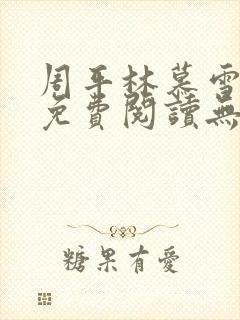 周平林慕雪
免費閱讀無
糖果有愛